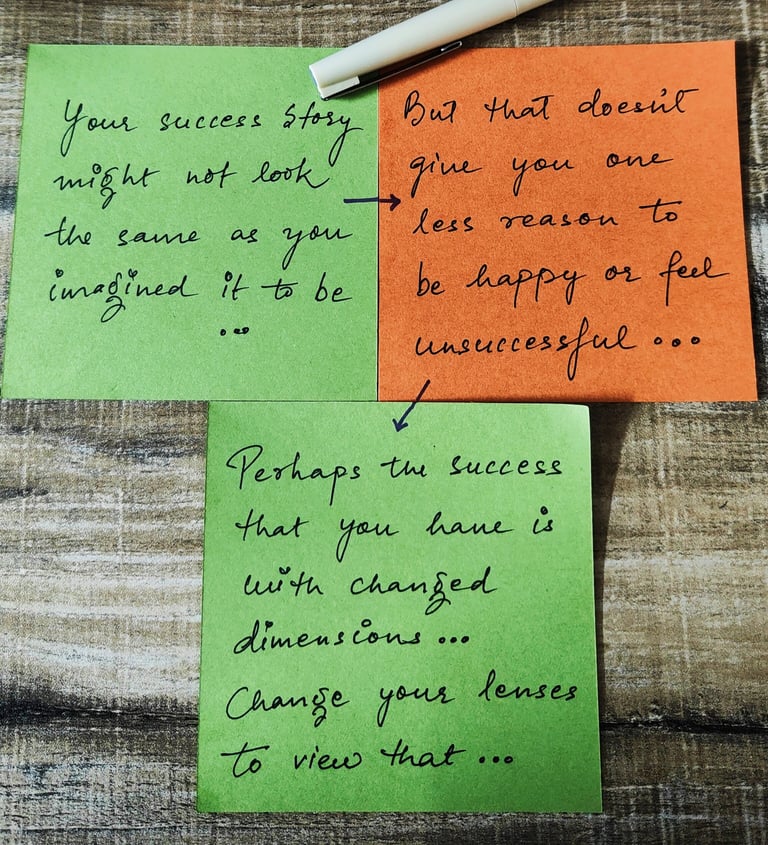 Your success story
might not look
the same as you
imagined it to be
...
But that doesn't
give you one
less reason to
be happy or feel
unsuccessful ...
Perhaps the success
that you have is
with changed
dimensions ...
Change your lenses
to view that ...